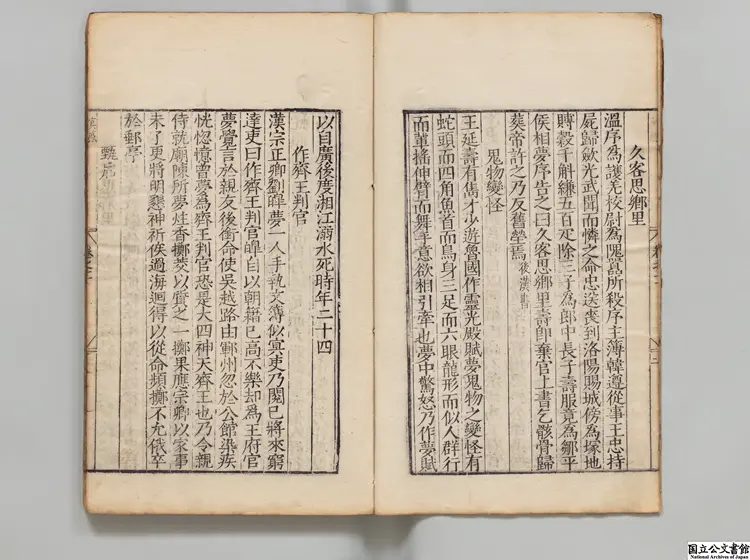 久客思鄉里
溫序為護羌校尉為隗囂所殺序主簿韓遵從事王忠持
屍歸斂光武聞而憐之命忠送喪到洛陽賜城傍為塚地
賻穀千斛縑五百疋除三子為郎中長子壽服竟為鄒平
侯相夢序告之曰久客思鄉里壽即棄官上書乞骸骨歸
葬帝許之乃反舊塋焉 後漢書
鬼物變怪
王延壽有雋才少遊魯國作靈光殿賦夢鬼物之變怪有
蛇頭而四角魚首而鳥身三足而六眼龍形而似人群行
而輩搖伸臂而舞手意欲相引牽也夢中驚怒乃作夢賦
以自廣後度湘江溺水死時年二十四
作齊王判官
漢宗正卿劉皥夢一人手執文簿似冥吏乃閱已將來窮
達吏曰作齊王判官皥自以朝籍已高不樂却為王府官
夢覺言於親友後銜命使吳越路由鄆州忽於公館染疾
恍惚憶曾夢為齊王判官恐是太四神天齊王也乃令親
侍就廟陳所夢炷香擲茭以質之一擲果應宗卿以家事
未了更將明懇神祈俟過海迴得以從命頻擲不允俄卒
於郵亭
国立公文書館
National Archives of Japan